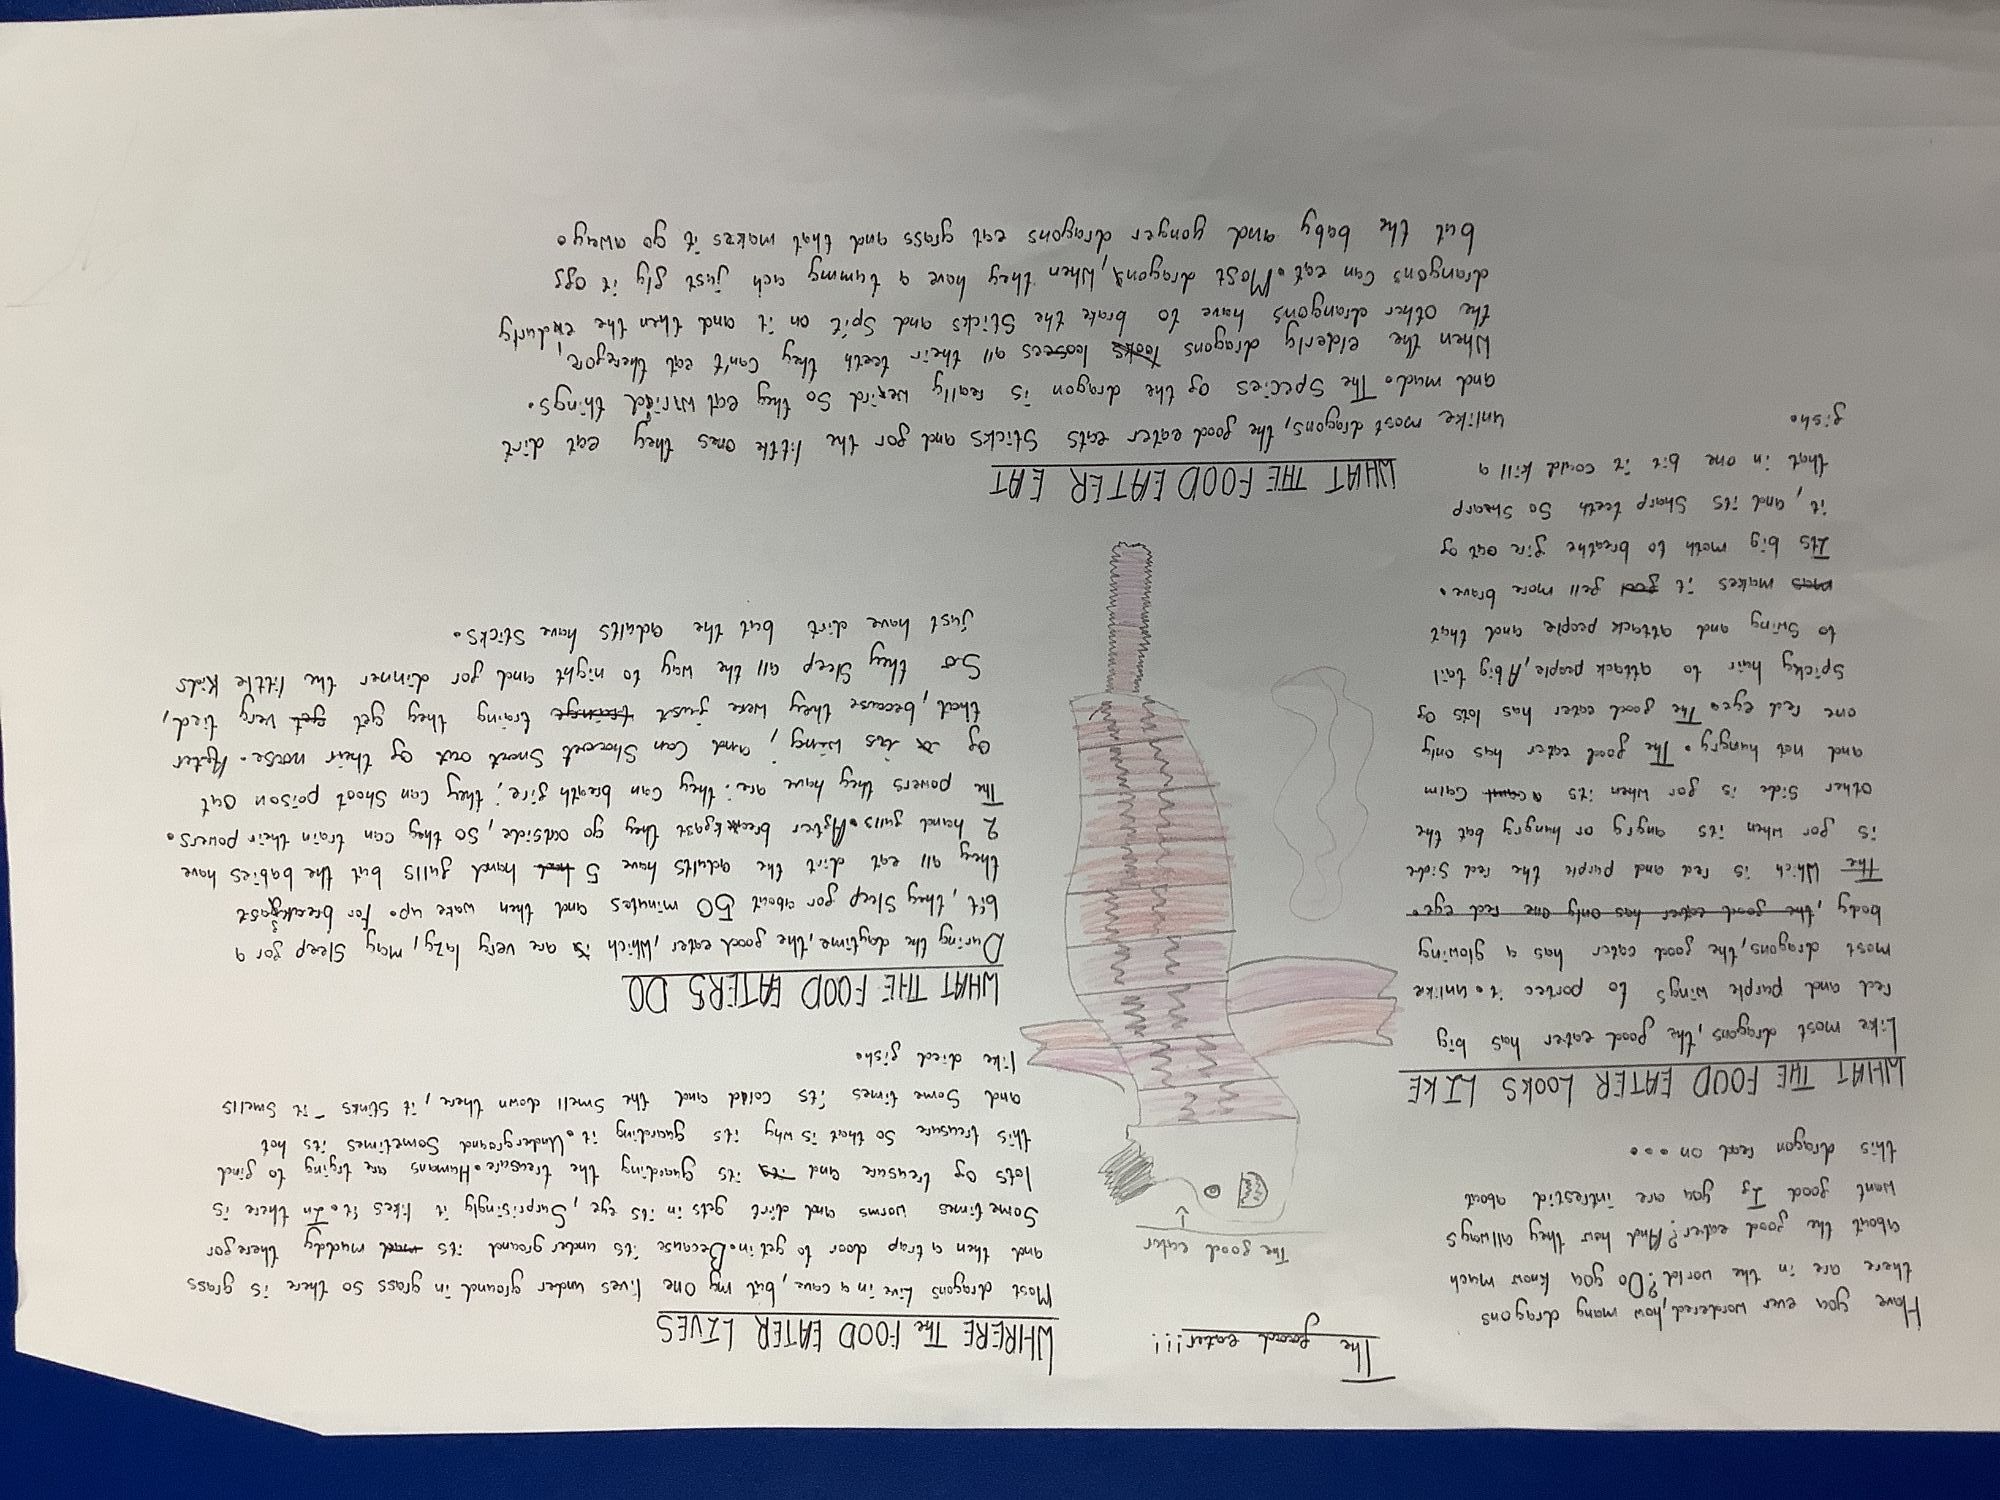 The food eater!!!
Have you ever wordered, how many dragons
there are in the world? Do you know much
about the food eater? And how they allways
want food If you are intrestid about
this dragon read on ....
WHAT THE FOOD EATER LOOKS LIKE
Like most dragons, the food eater has big
red and purple wings to portec it. unlike
most dragons, the food eater has a glowing
body, the food eater has only one red eye.
The Which is red and purple the red side
is for when its angry or hungry but the
other side is for when its calm
and not hungry. The food eater has only
one red eye. The food eater has lots of
spicky hair to attack people, A big tail
to swing and attack people and that
makes it fell more brave.
Its big moth to breathe fire out of
it, and its sharp teeth so sharp
that in one bit it could kill a
fish.
The food eater
WHRERE The FOOD EATER LIVES
Most dragons live in a cave, but my one lives under ground in grass so there is grass
and then a trap door to get in. Because its under ground its muddy there for
some times worms and dirt gets in its eye, Surprisingly it likes it. In there is
lots of treasure and its guarding the treasure. Humans are trying to find
this treusure so that is why its guarding it. Underground Sometimes its hot
and some times its coldd and the smell down there, it stinks - it smells
like died fish.
WHAT THE FOOD EATERS DO
During the daytime, the food eater, which, are very lazy, may sleep for a
bit, they sleep for about 50 minutes and then wake up. For breakfast
they all eat dirt the adults have 5 hand fulls but the babies have
2 hand fulls. After breakfast they go outside, so they can train their powers.
The powers they have are: they can breath fire; they can shoot poison out
of its wing; and can snort out of their noose. After
that, because they were just traing they get very tied,
So they sleep all the way to night and for dinner the little kids
just have dirt but the adults have sticks.
WHAT THE FOOD EATER EAT
unlike most dragons, the food eater eats sticks and for the little ones they eat dirt
and mud. The species of the dragon is really weird so they eat wriid things.
When the elderly dragons loosees all their teeth they can't eat therefore,
the other drangons have to brake the sticks and spit on it and then the endurly
drangons can eat. Most dragons, when they have a tummy ach just fly it off
but the baby and yonger dragons eat grass and that makes it go away.